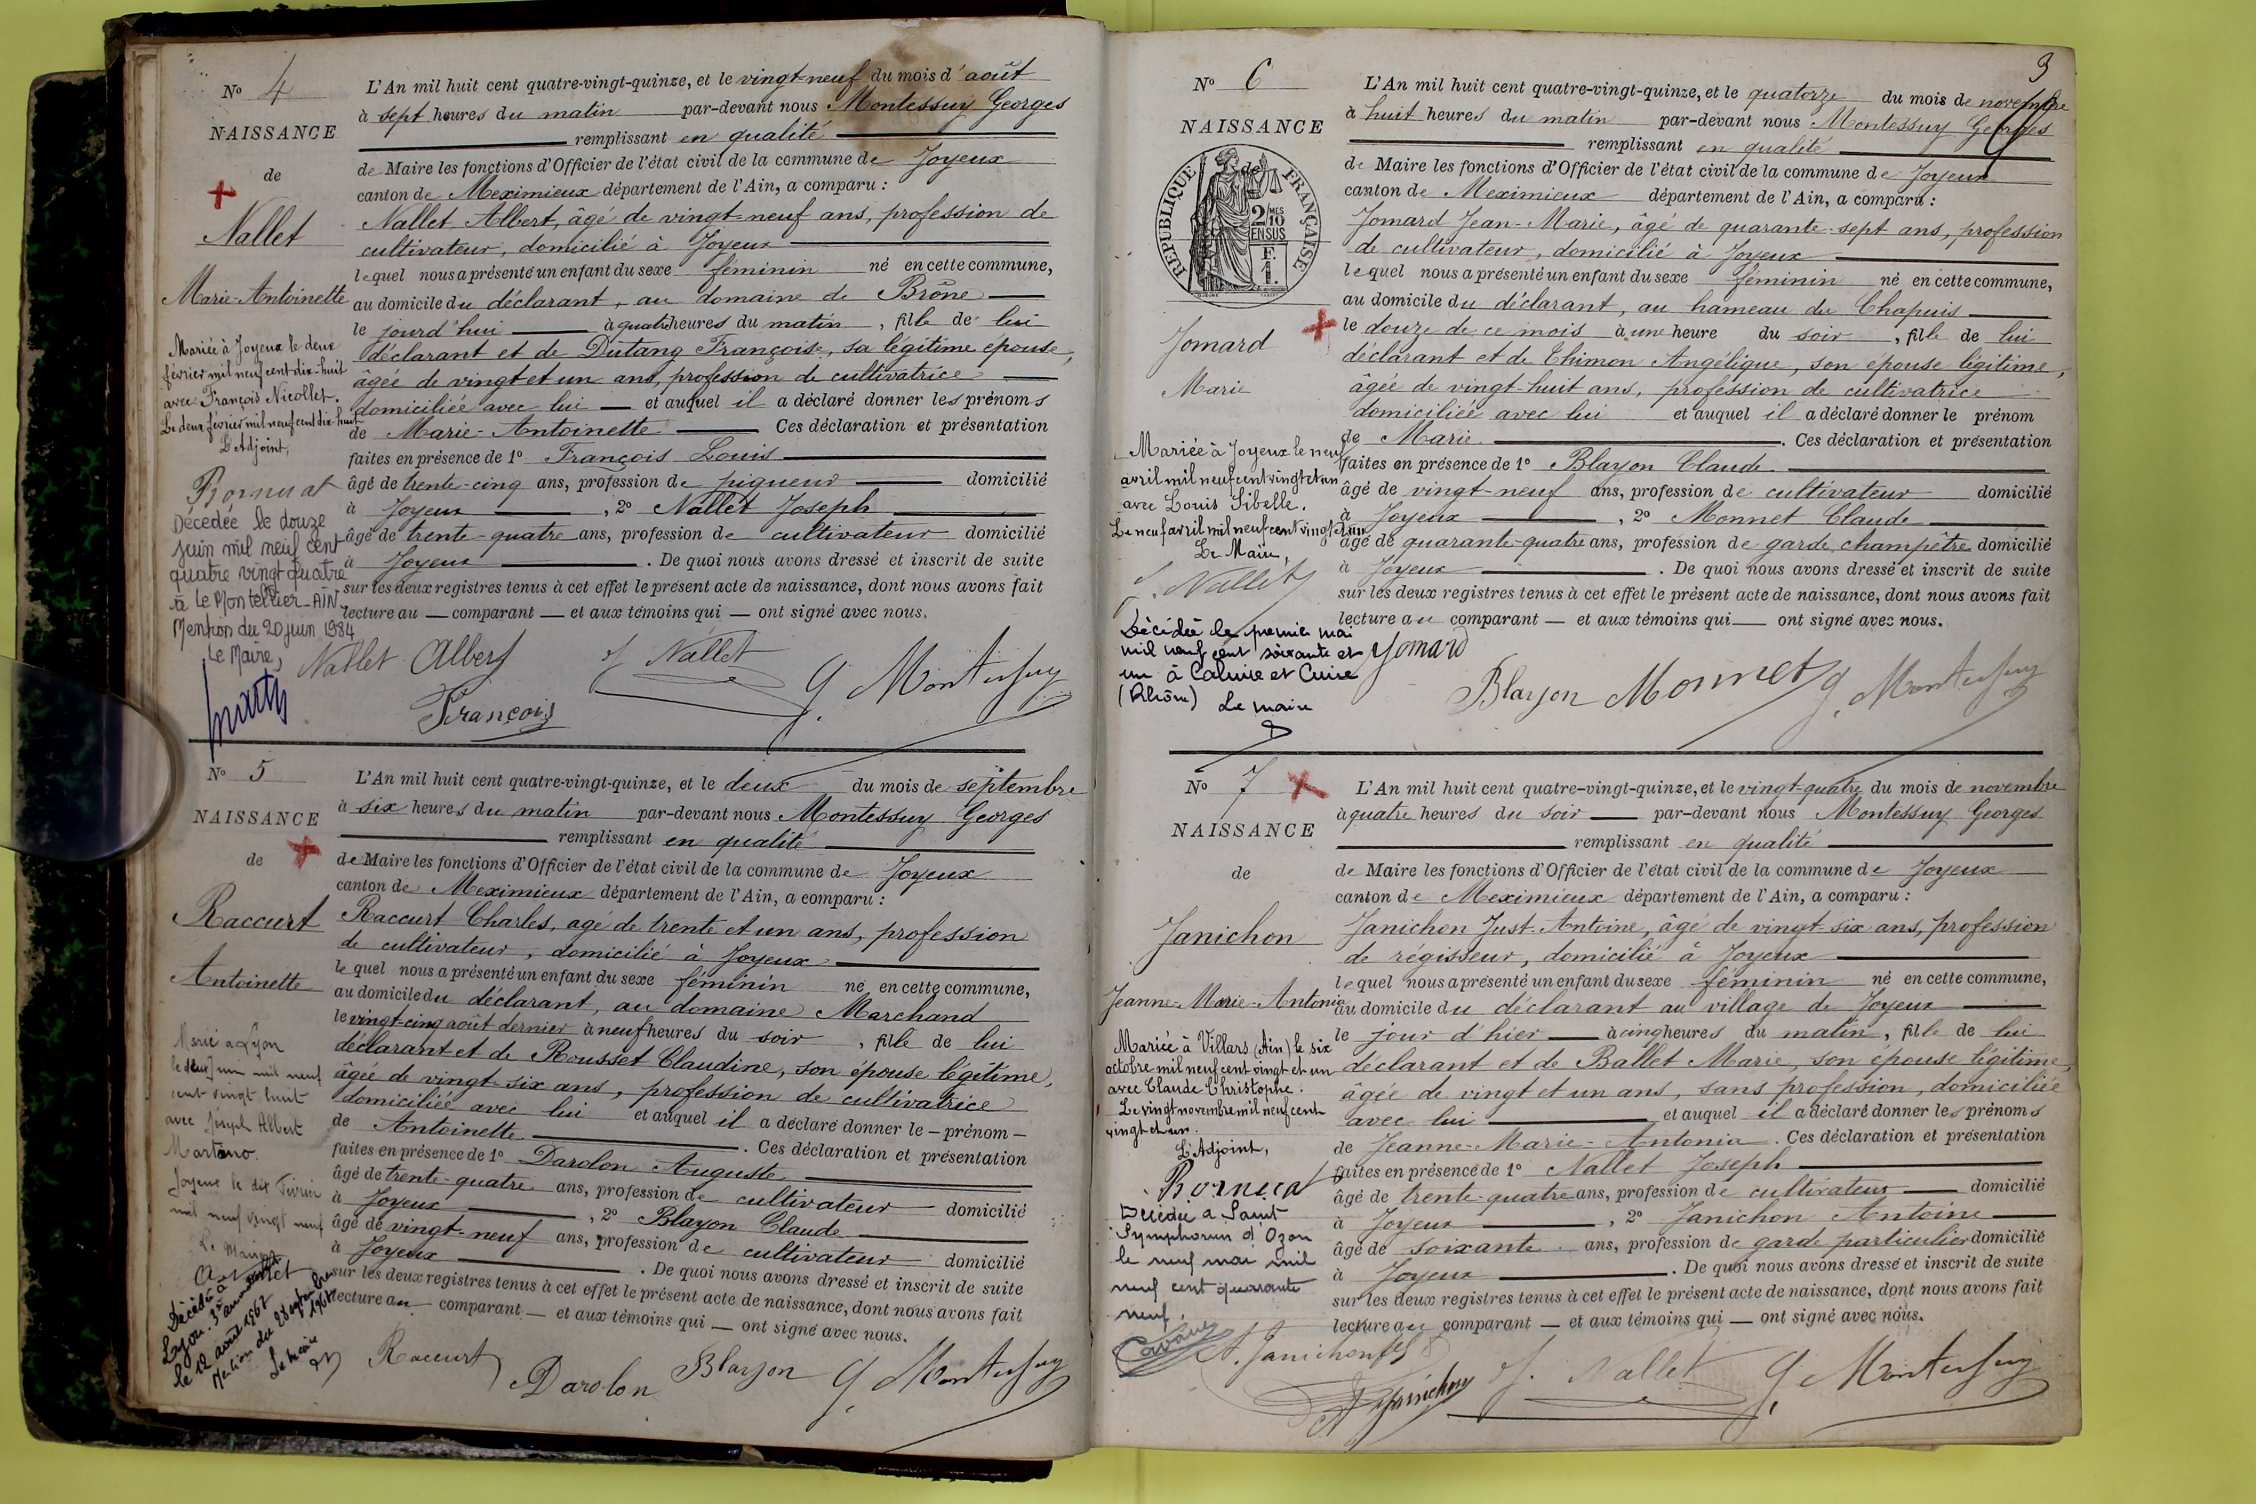 N° 4
NAISSANCE
de
Nallet
Marie-Antoinette
Mariée à Joyeux le deux
février mil neuf cent dix-huit
avec François Nicollet.
Le deux février mil neuf cent dix-huit
L'Adjoint,
Décédée le douze
juin mil neuf cent
quatre vingt quatre
à Le Montellier-AIN-
Mention du 20 juin 1984
Le Maire,
L'An mil huit cent quatre-vingt-quinze, et le vingt-neuf du mois d'août
à sept heures du matin par-devant nous Montessuy Georges
remplissant en qualité
de Maire les fonctions d'Officier de l'état civil de la commune de Joyeux
canton de Meximieux département de l'Ain, a comparu :
Nallet Albert, âgé de vingt-neuf ans, profession de
cultivateur, domicilié à Joyeux
lequel nous a présenté un enfant du sexe féminin né en cette commune,
au domicile du déclarant, au domaine de Brône
le jourd'hui à quatre heures du matin, fille de lui
déclarant et de Dutang Françoise, sa légitime épouse,
âgée de vingt et un ans, profession de cultivatrice
domiciliée avec lui et auquel il a déclaré donner les prénoms
de Marie-Antoinette Ces déclaration et présentation
faites en présence de 1° François Louis
âgé de trente-cinq ans, profession de piqueur domicilié
à Joyeux, 2° Nallet Joseph
âgé de trente-quatre ans, profession de cultivateur domicilié
à Joyeux. De quoi nous avons dressé et inscrit de suite
sur les deux registres tenus à cet effet le présent acte de naissance, dont nous avons fait
lecture au — comparant — et aux témoins qui — ont signé avec nous.
Nallet Albert J Nallet G. Montessuy
François
N° 5
NAISSANCE
de
Raccurt
Antoinette
Marié à Lyon
le deux juin mil neuf
cent vingt huit
avec Joseph Albert
Martano.
Joyeux le dix Février
mil neuf vingt neuf
Le Maire
Décédé à
Lyon. 3e
le 12 août 1967
Mention du 2 septembre
1967
Le maire
L'An mil huit cent quatre-vingt-quinze, et le deux du mois de septembre
à six heures du matin par-devant nous Montessuy Georges
remplissant en qualité
de Maire les fonctions d'Officier de l'état civil de la commune de Joyeux
canton de Meximieux département de l'Ain, a comparu :
Raccurt Charles, agé de trente et un ans, profession
de cultivateur, domicilié à Joyeux
lequel nous a présenté un enfant du sexe féminin né en cette commune,
au domicile du déclarant, au domaine Marchand
le vingt-cinq août dernier à neuf heures du soir, fille de lui
déclarant et de Rousset Claudine, son épouse légitime,
âgée de vingt-six ans, profession de cultivatrice
domiciliée avec lui et auquel il a déclaré donner le – prénom –
de Antoinette. Ces déclaration et présentation
faites en présence de 1° Darolon Auguste
âgé de trente-quatre ans, profession de cultivateur domicilié
à Joyeux, 2° Blayon Claude
âgé de vingt-neuf ans, profession de cultivateur domicilié
à Joyeux. De quoi nous avons dressé et inscrit de suite
sur les deux registres tenus à cet effet le présent acte de naissance, dont nous avons fait
lecture au — comparant — et aux témoins qui — ont signé avec nous.
Raccurt Darolon Blayon G. Montessuy
3
N° 6
NAISSANCE
de
REPUBLIQUE FRANÇAISE
2/10 MES
EN SUS
F.
1.
Jomard
Marie
Mariée à Joyeux le neuf
avril mil neuf cent vingt et un
avec Louis Sibelle.
Le neuf avril mil neuf cent vingt et un
Le Maire,
J. Nallet
Décédée le premier mai
mil neuf cent soixante et
un à Caluire et Cuire
(Rhône) Le maire
L'An mil huit cent quatre-vingt-quinze, et le quatorze du mois de novembre
à huit heures du matin par-devant nous Montessuy Georges
remplissant en qualité
de Maire les fonctions d'Officier de l'état civil de la commune de Joyeux
canton de Meximieux département de l'Ain, a comparu :
Jomard Jean-Marie, âgé de quarante-sept ans, profession
de cultivateur, domicilié à Joyeux
lequel nous a présenté un enfant du sexe féminin né en cette commune,
au domicile du déclarant, au hameau du Chapuis
le douze de ce mois à une heure du soir, fille de lui
déclarant et de Thimon Angélique, son épouse légitime,
âgée de vingt-huit ans, profession de cultivatrice
domiciliée avec lui et auquel il a déclaré donner le prénom
de Marie. Ces déclaration et présentation
faites en présence de 1° Blayon Claude
âgé de vingt-neuf ans, profession de cultivateur domicilié
à Joyeux, 2° Monnet Claude
âgé de quarante-quatre ans, profession de garde champêtre domicilié
à Joyeux. De quoi nous avons dressé et inscrit de suite
sur les deux registres tenus à cet effet le présent acte de naissance, dont nous avons fait
lecture au comparant — et aux témoins qui — ont signé avec nous.
Jomard
Blayon Monnet G. Montessuy
N° 7
NAISSANCE
de
Janichon
Jeanne-Marie-Antonia
Mariée à Villars (Ain) le six
octobre mil neuf cent vingt et un
avec Claude Christophe.
Le vingt novembre mil neuf cent
vingt et un.
L'Adjoint,
Décédée à Saint
Symphorien d'Ozon
le neuf mai mil
neuf cent quarante
neuf.
L'An mil huit cent quatre-vingt-quinze, et le vingt-quatre du mois de novembre
à quatre heures du soir par-devant nous Montessuy Georges
remplissant en qualité
de Maire les fonctions d'Officier de l'état civil de la commune de Joyeux
canton de Meximieux département de l'Ain, a comparu :
Janichon Just-Antoine, âgé de vingt-six ans, profession
de régisseur, domicilié à Joyeux
lequel nous a présenté un enfant du sexe féminin né en cette commune,
au domicile du déclarant au village de Joyeux
le jour d'hier à cinq heures du matin, fille de lui
déclarant et de Ballet Marie, son épouse légitime,
âgée de vingt et un ans, sans profession, domiciliée
avec lui et auquel il a déclaré donner les prénoms
de Jeanne-Marie-Antonia. Ces déclaration et présentation
faites en présence de 1° Nallet Joseph
âgé de trente-quatre ans, profession de cultivateur domicilié
à Joyeux, 2° Janichon Antoine
âgé de soixante ans, profession de garde particulier domicilié
à Joyeux. De quoi nous avons dressé et inscrit de suite
sur les deux registres tenus à cet effet le présent acte de naissance, dont nous avons fait
lecture au comparant — et aux témoins qui — ont signé avec nous.
A. Janichon fils
A Janichon J. Nallet G. Montessuy